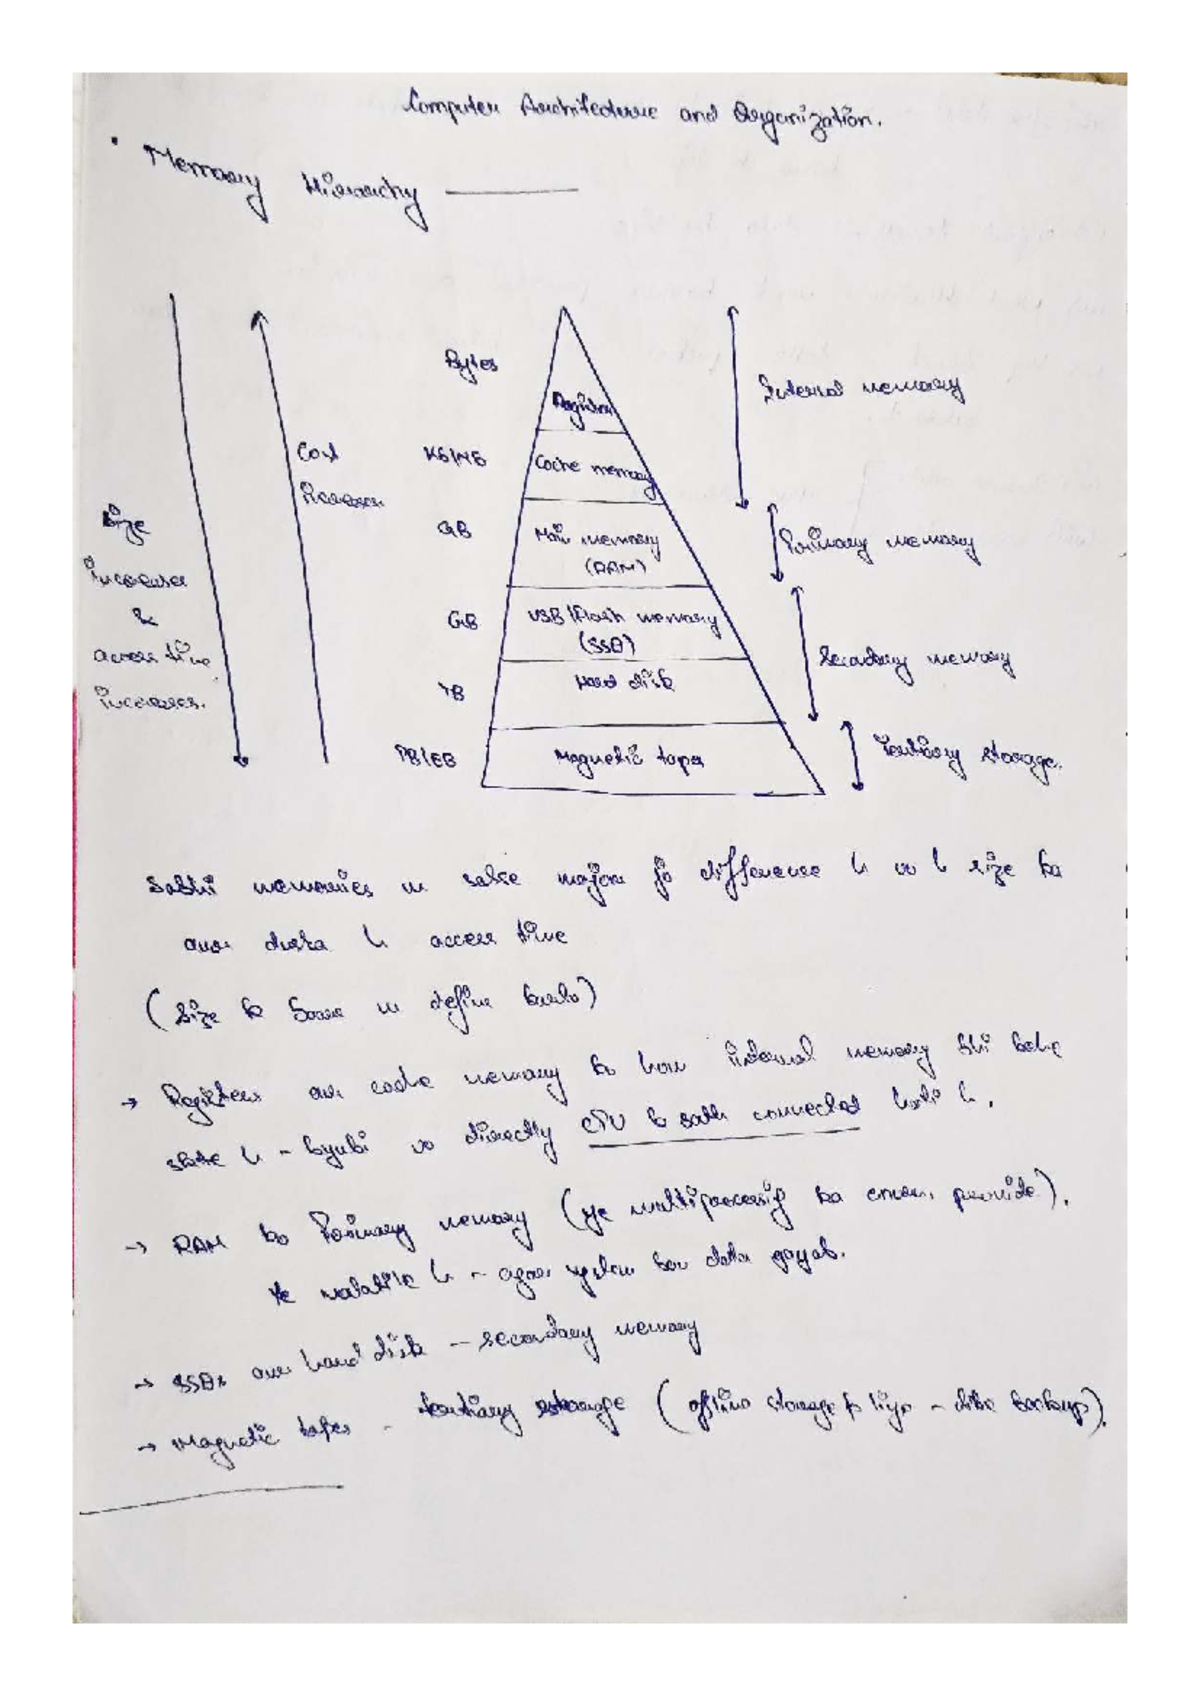 Computer Architecture and Organization.
Memory Hierarchy
Bytes
Registers
Internal memory
Cost
increases
KB/MB
Cache memory
Size
increases
&
access time
increases.
GB
Main memory
(RAM)
Primary memory
GB
USB/Flash memory
(SSD)
Secondary memory
TB
Hard disk
PB/EB
Magnetic tapes
Tertiary storage.
Sabhi memories m sabse major jo difference h vo h size ka
aur dusra h access time
(Size ko Base m define karlo)
→ Registers aur cache memory ko hum internal memory bhi bol
skte h - kyuki vo directly CPU k sath connected hoti h.
→ RAM ko Primary memory (ye multiprocessing ka env. provide).
Ye volatile h - agar system band data gayab.
→ SSDs aur hard disk - secondary memory
→ Magnetic tapes - tertiary storage (offline storage k liye - like backup).